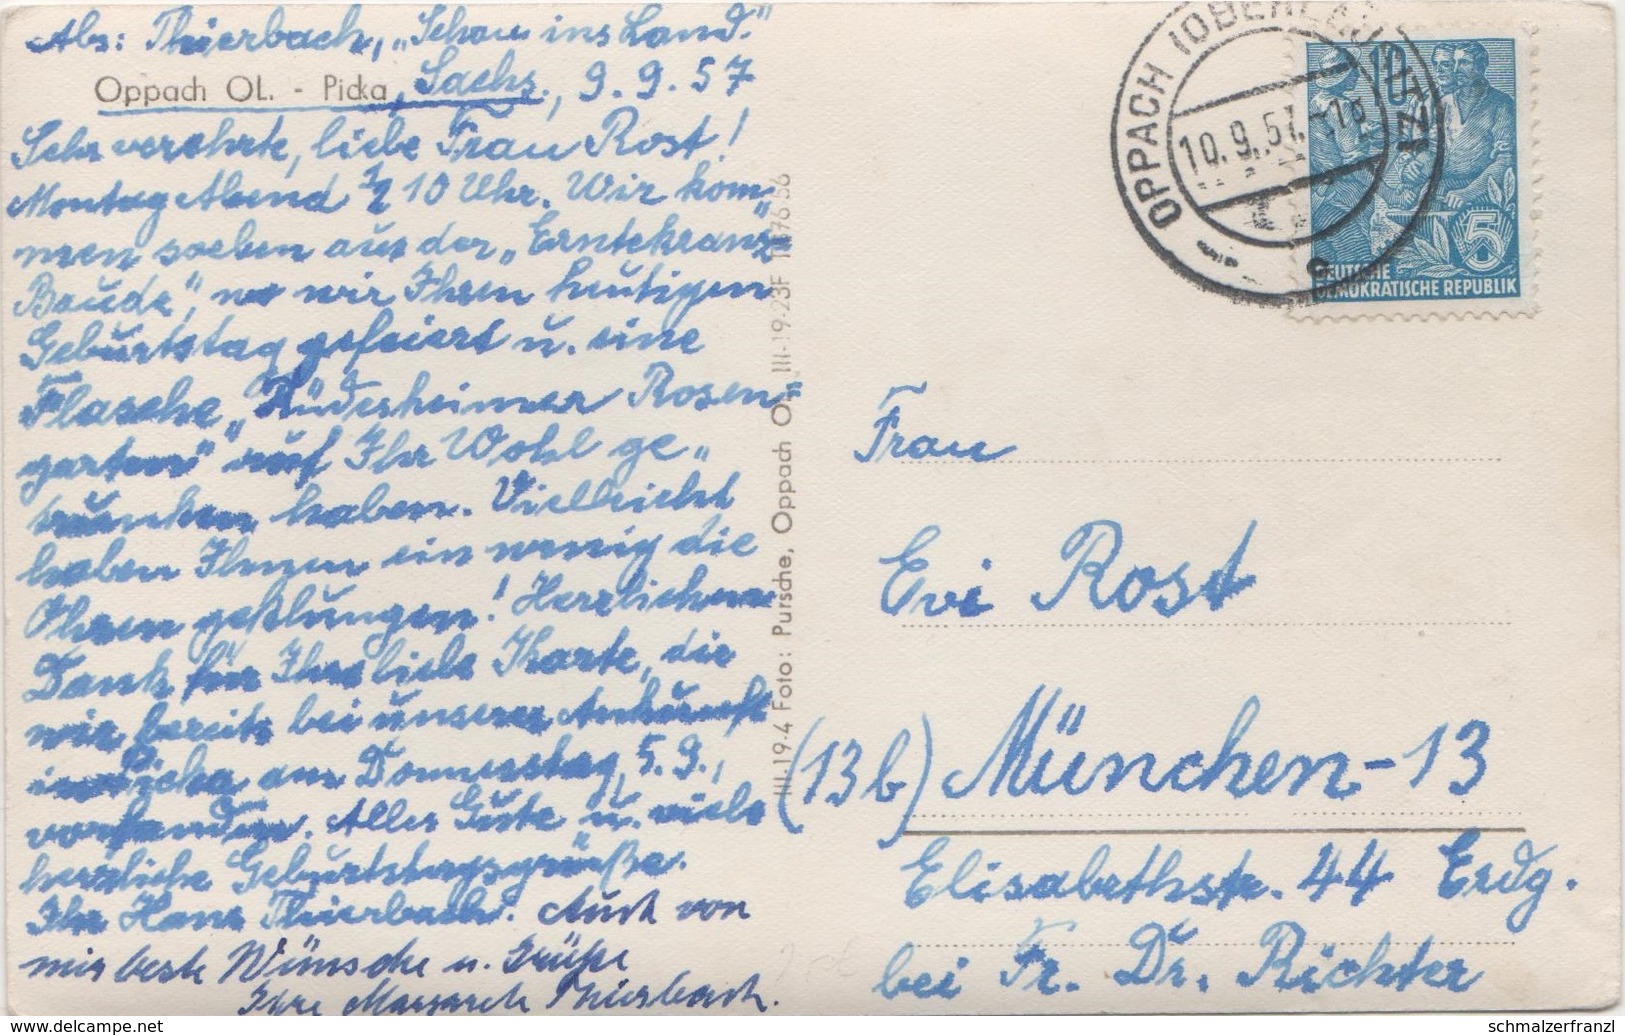 Abs: Thierbach, „Schau ins Land"
Oppach OL. - Picka, Sachs., 9.9.57
Sehr verehrte, liebe Frau Rost!
Montag Abend ½ 10 Uhr. Wir kom„
men soeben aus der „Erntekranz
Baude", wo wir Ihren heutigen
Geburtstag gefeiert u. eine
Flasche „Rüdesheimer Rosen=
garten" auf Ihr Wohl ge„
trunken haben. Vielleicht
haben Ihnen ein wenig die
Ohren geklungen! Herzlichen
Dank für Ihre liebe Karte, die
wir bereits bei unserer Ankunft
in Picka am Donnerstag, 5.9.,
vorfanden. Alles Gute u. viele
herzliche Geburtstagsgrüße.
Ihr Hans Thierbach. Auch von
mir beste Wünsche u. Grüße
Ihre Margarete Thierbach.
III-19-4 Foto: Pursche, Oppach OL III-19-23F
OPPACH (OBERLAUSITZ)
10.9.57.-18
10
5
DEUTSCHE
DEMOKRATISCHE REPUBLIK
Frau
Evi Rost
(13b) München-13
Elisabethstr. 44 Erdg.
bei Fr. Dr. Richter
www.delcampe.net
schmalzerfranzl